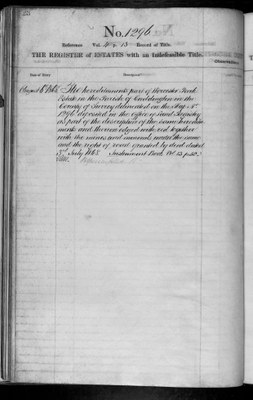 No. 1296
Reference Vol. 4 p. 13 Record of Title.
THE REGISTER of ESTATES with an Indefeasible Title.
Date of Entry
Description
August 6 1868 The hereditaments part of Park
Estate in the Parish of in the
County of Surrey delineated on the Map No
1296 deposited in the office of Land Registry
as part of the description of the same heredita-
ments and thereon edged with red together
with the mines and minerals under the same
and the right of road granted by deed dated
3rd July 1868. Instrument Book